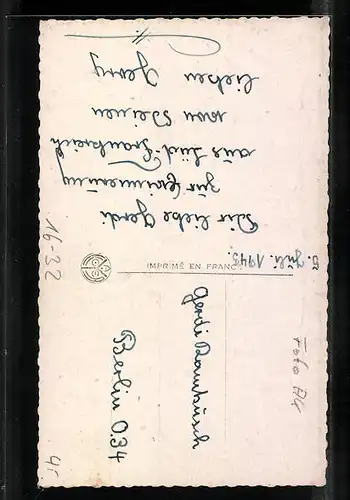 5. Juli. 1943.
Dir liebe Gerdi
zur Erinnerung
aus Süd-Frankreich
von Deinem
lieben Georg
IMPRIMÉ EN FRANCE
Gerdi
Berlin O.34
16-32
Foto AK
4,-